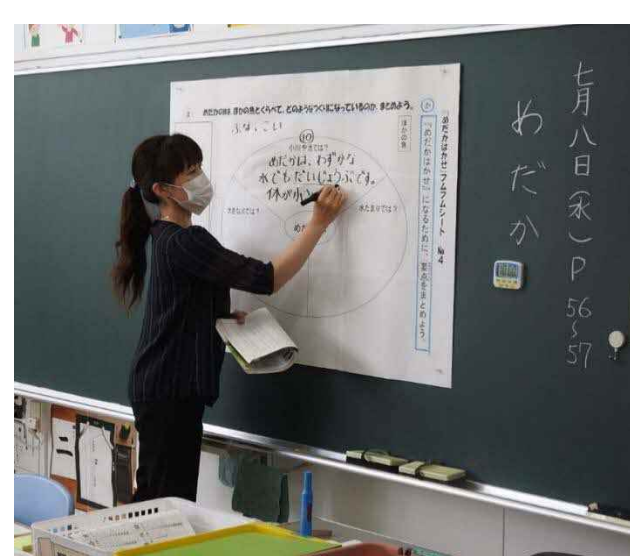 七月八日(水)P56~57
めだか
『めだかはかせ』フムフムシート №4
め『めだかはかせ』になるために、要点をまとめよう。
めだかの体は、ほかの魚とくらべて、どのようなつくりになっているのか、まとめよう。
ほかの魚
ふな、こい
小川や池では?
めだかは、わずかな
水でもだいじょうぶです。
体が小
大きな川では?
水たまりでは?
めだ